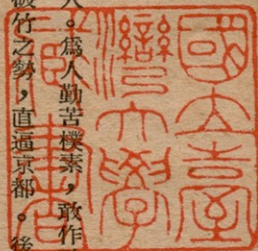 國立臺
灣大學
書
人。爲人勤苦樸素，敢作
破竹之勢，直逼京都。後